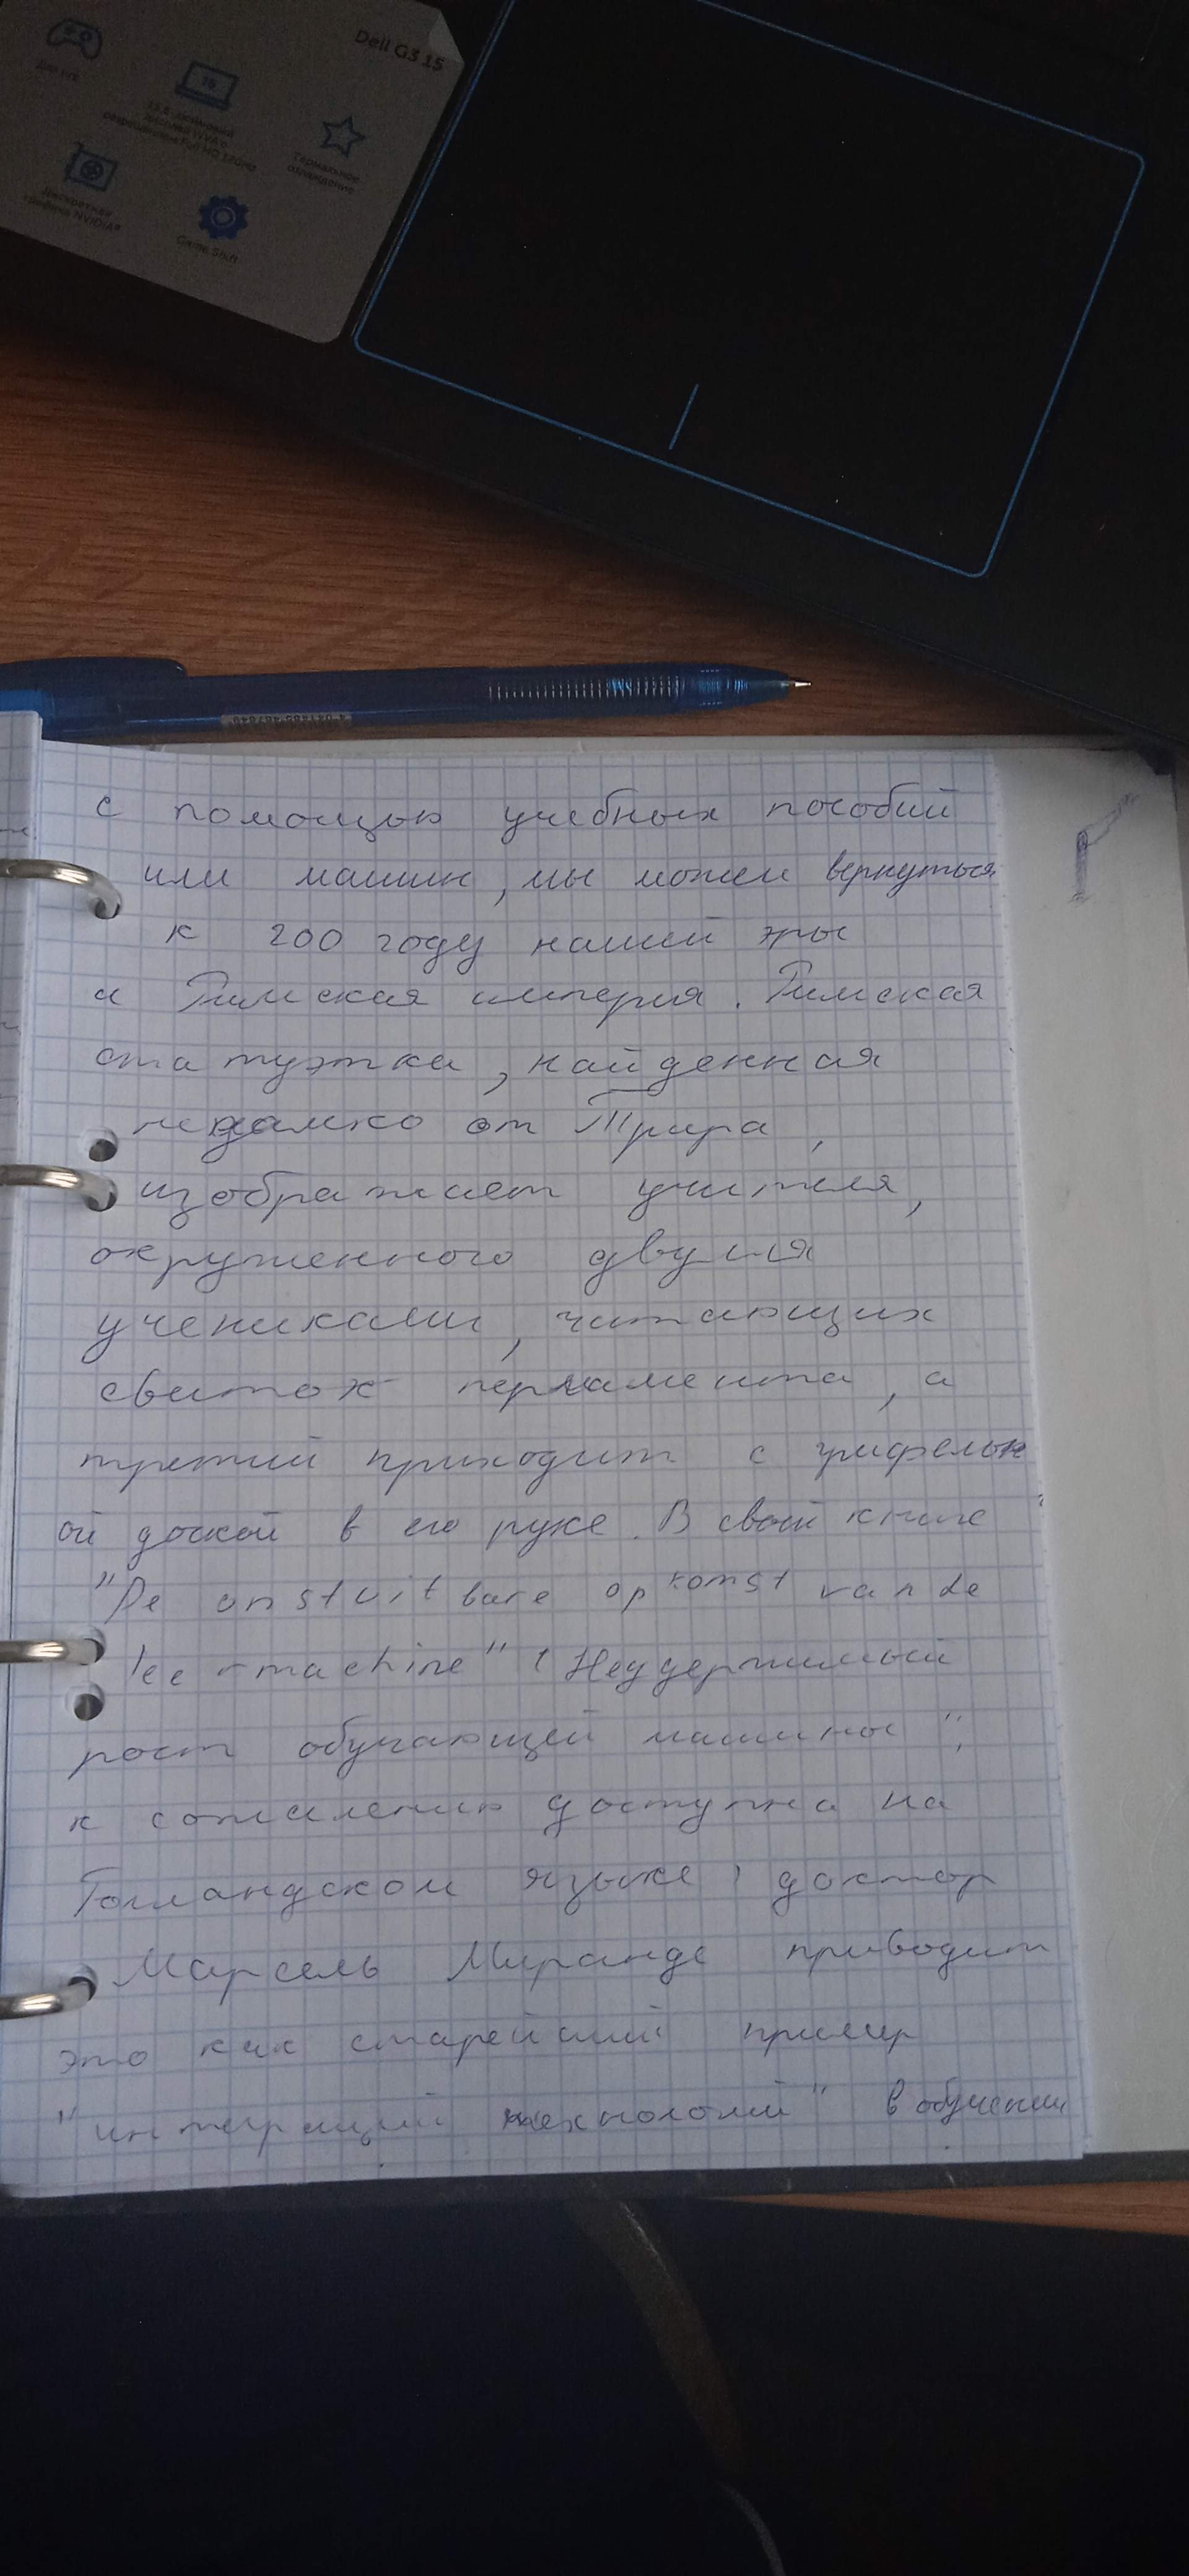 Dell G3 15
Термальное
охлаждение
Дискретная
графика NVIDIA
Game Shift
с помощью учебных пособий
или машин, мы можем вернуться
к 200 году нашей эры
и Римская империя. Римская
статуэтка, найденная
недалеко от Трира,
изображает учителя,
окруженного двумя
учениками, читающих
свиток пергамента, а
третий приходит с грифельн
ой доской в его руке. В своей книге
"De onstuitbare opkomst van de
leermachine" (Неудержимый
рост обучающей машины",
к сожалению доступна на
Голландском языке) доктор
Марсель Миранде приводит
это как старейший пример
"интеграций технологий" в обучении